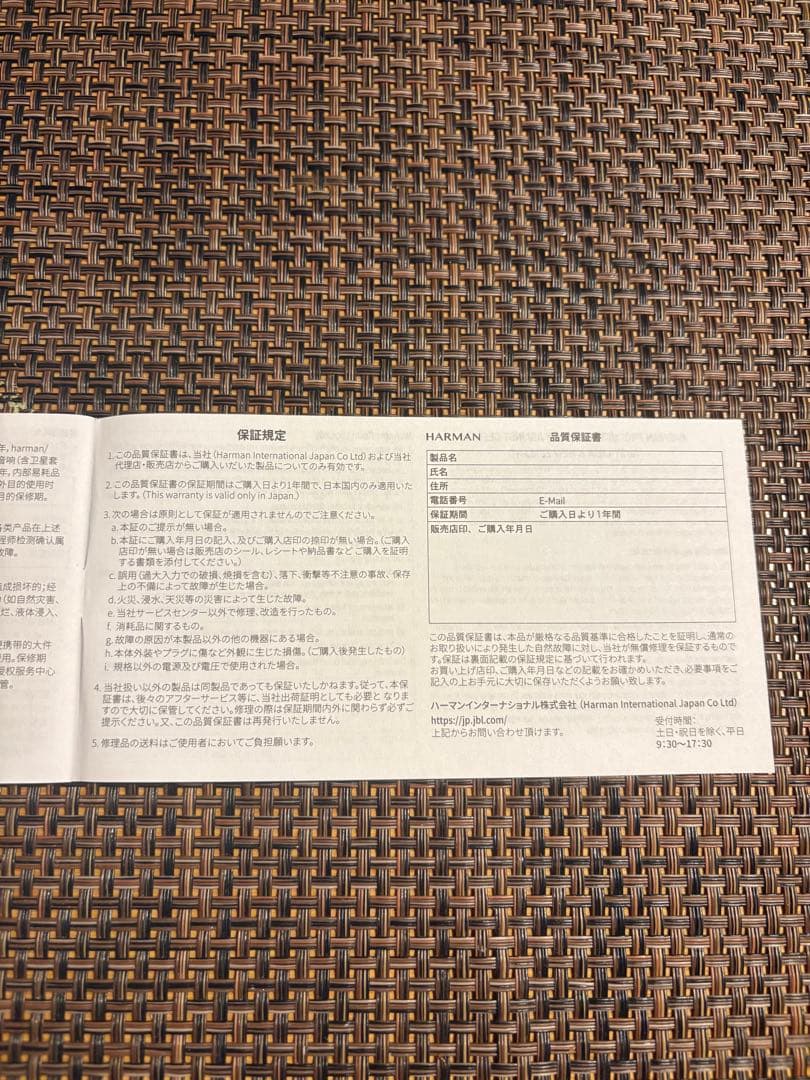 年，harman/
音响（含卫星套
年，内部易耗品
外目的使用时
目的保修期。
各类产品在上述
程师检测确认属
故障。
造成损坏的；经
（如自然灾害、
烂、液体浸入、
携带的大件
使用。保修期
授权服务中心
管。
保証規定
1.この品質保証書は、当社（Harman International Japan Co Ltd）および当社
代理店・販売店からご購入いだいた製品についてのみ有効です。
2.この品質保証書の保証期間はご購入日より1年間で、日本国内のみ適用いた
します。（This warranty is valid only in Japan.）
3.次の場合は原則として保証が適用されませんのでご注意ください。
a.本証のご提示が無い場合。
b.本証にご購入年月日の記入、及びご購入店印の捺印が無い場合。（ご購入
店印が無い場合は販売店のシール、レシートや納品書など ご購入を証明
する書類を添付してください。）
c.誤用（過大入力での破損、焼損を含む）、落下、衝撃等不注意の事故、保存
上の不備によって故障が生じた場合。
d.火災、浸水、天災等の災害によって生じた故障。
e.当社サービスセンター以外で修理、改造を行ったもの。
f. 消耗品に関するもの。
g.故障の原因が本製品以外の他の機器にある場合。
h.本体外装やプラグに傷など外観に生じた損傷。（ご購入後発生したもの）
i. 規格以外の電源及び電圧で使用された場合。
4.当社扱い以外の製品は同製品であっても保証いたしかねます。従って、本保
証書は、後々のアフターサービス等に、当社出荷証明としても必要と なりま
すので大切に保管してください。修理の際は保証期間内外に関わらず必ずご
提示ください。又、この品質保証書は再発行いたしません。
5.修理品の送料はご使用者においてご負担願います。
HARMAN 品質保証書
製品名
氏名
住所
電話番号 E-Mail
保証期間 ご購入日より1年間
販売店印、ご購入年月日
この品質保証書は、本品が厳格なる品質基準に合格したことを証明し、通常の
お取り扱いにより発生した自然故障に対し、当社が無償修理を保証するもので
す。保証は裏面記載の保証規定に基づいて行われます。
お買い上げ店印、ご購入年月日などの記載をお確かめいただき、必要事項をご
記入の上お手元に大切に保存いただくようお願い致します。
ハーマンインターナショナル株式会社（Harman International Japan Co Ltd）
https://jp.jbl.com/ 受付時間：
上記からお問い合わせ頂けます。 土日・祝日を除く、平日
9：30～17：30